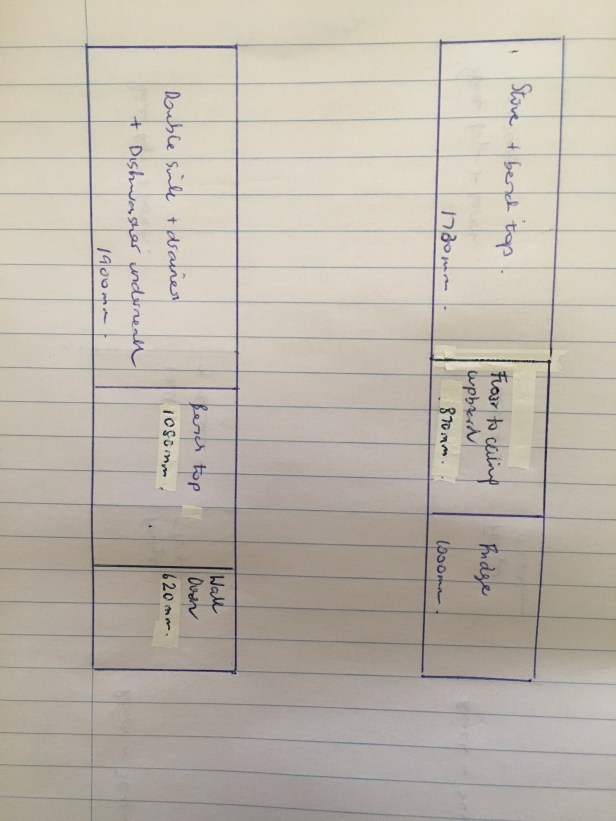 Stove + bench top.
1730mm.
Floor to ceiling
cupboard
870mm.
Fridge
1000mm.
Double sink + drainer
+ Dishwasher underneath
1900mm.
Bench top
1080mm.
Wall
Oven
620mm.